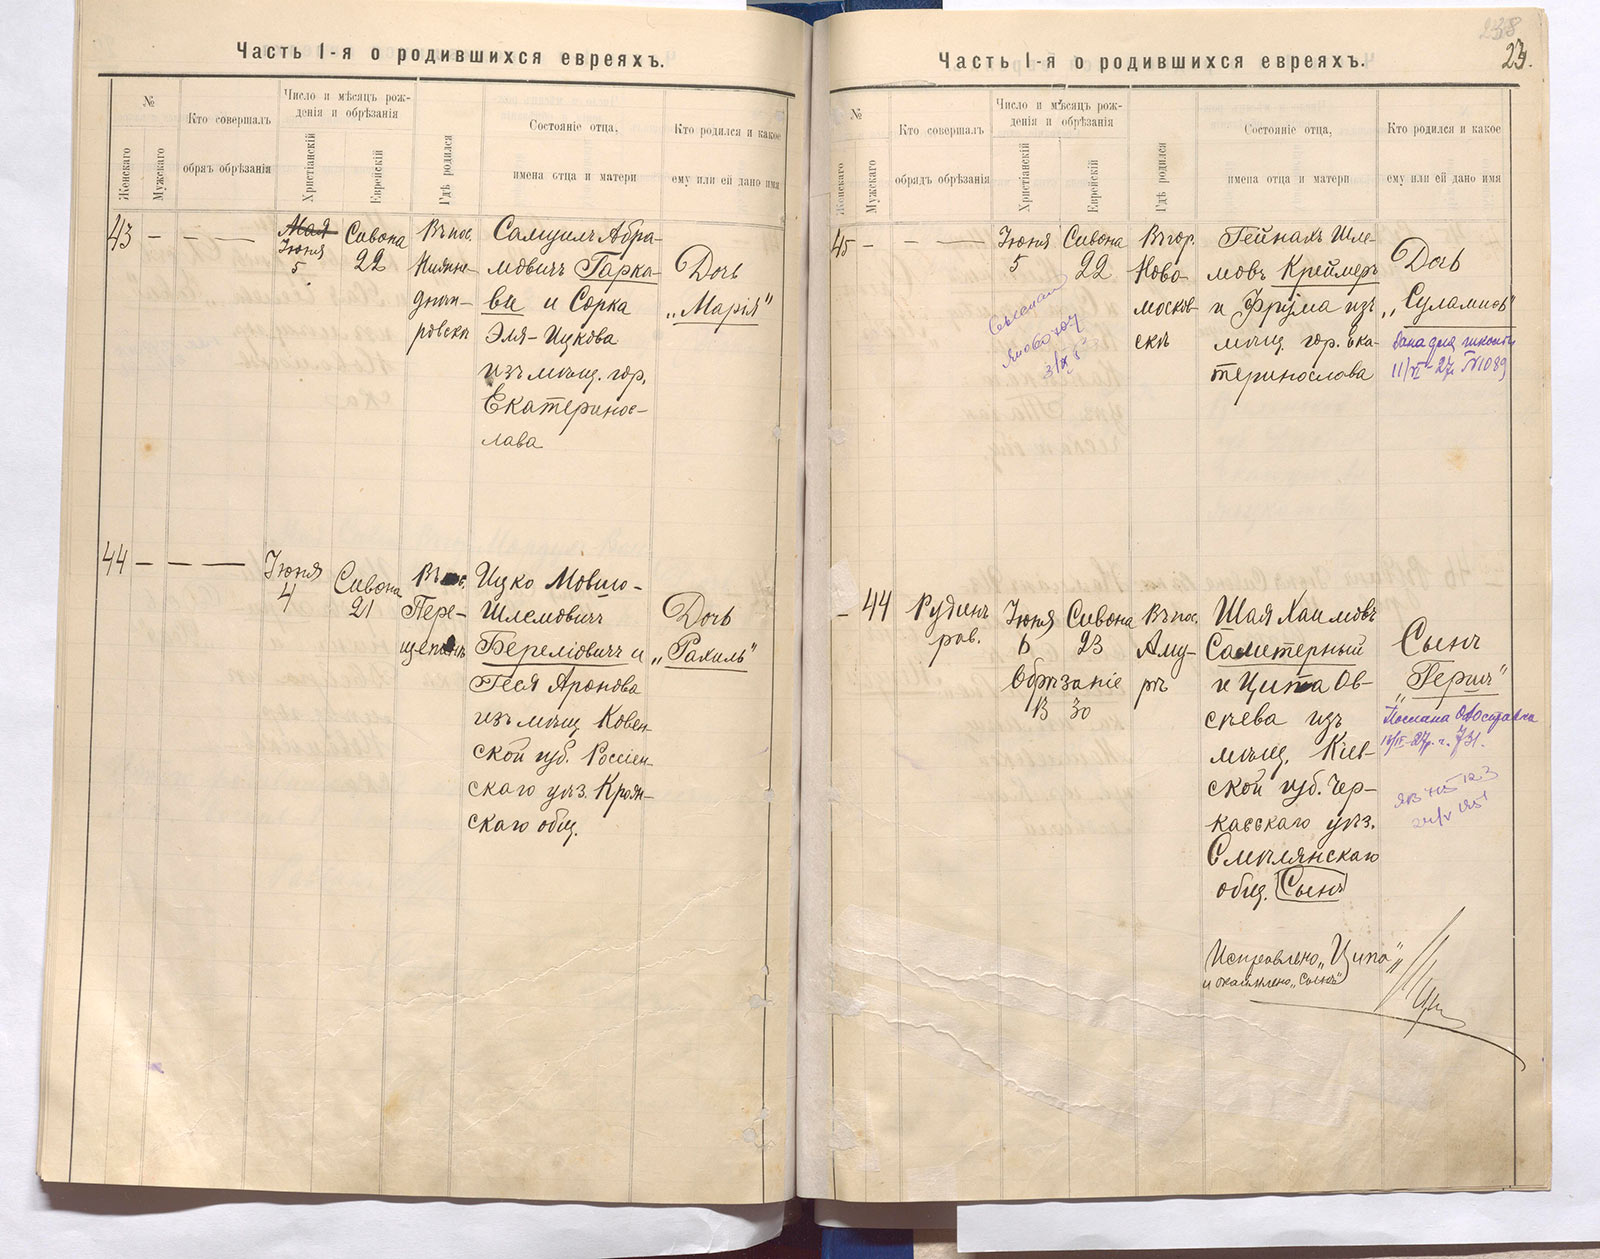 Часть 1-я о родившихся евреяхъ.
№
Женскаго
Мужскаго
Кто совершалъ
обрядъ обрѣзанія
Число и мѣсяцъ рож-
денія и обрѣзанія
Христіанскій
Еврейскій
Гдѣ родился
Состояніе отца,
имена отца и матери
Кто родился и какое
ему или ей дано имя
43 — — —
Мая
Іюня
5
Сивона
22
Въ пос.
Нижне-
днѣп-
ровскѣ
Самуилъ Абра-
мовичъ Гарка-
ви и Сорка
Эля-Ицкова
изъ мѣщ. гор.
Екатеринос-
лава
Дочь
„Марія"
44 — — —
Іюня
4
Сивона
21
Въ пос.
Пере-
щепинѣ
Ицко Мовшо-
Шлемовичъ
Береліовичъ и
Геся Аронова
изъ мѣщ. Ковен-
ской губ. Россіен-
скаго уѣз. Крож-
скаго общ.
Дочь
„Рахиль"
238
23.
Часть 1-я о родившихся евреяхъ.
№
Женскаго
Мужскаго
Кто совершалъ
обрядъ обрѣзанія
Число и мѣсяцъ рож-
денія и обрѣзанія
Христіанскій
Еврейскій
Гдѣ родился
Состояніе отца,
имена отца и матери
Кто родился и какое
ему или ей дано имя
45 — — —
Іюня
5
Сивона
22
Въ гор.
Ново-
москов-
скѣ
Гейнахъ Шле-
мовъ Креймеръ
и Фрума изъ
мѣщ. гор. Ека-
теринослава
Дочь
„Суламиѳь"
11/VI-27 №1089
— 44
Рудинъ
рав.
Іюня
6
Сивона
23
Обрѣзаніе
13 30
Въ пос.
Аму-
рѣ
Шая Хаимовъ
Саметерный
и Ципа Ов-
сѣева изъ
мѣщ. Кіев-
ской губ. Чер-
касскаго уѣз.
Смѣлянскаго
общ. Сынъ
Сынъ
„Гершъ"
Исправлено „Ципа"